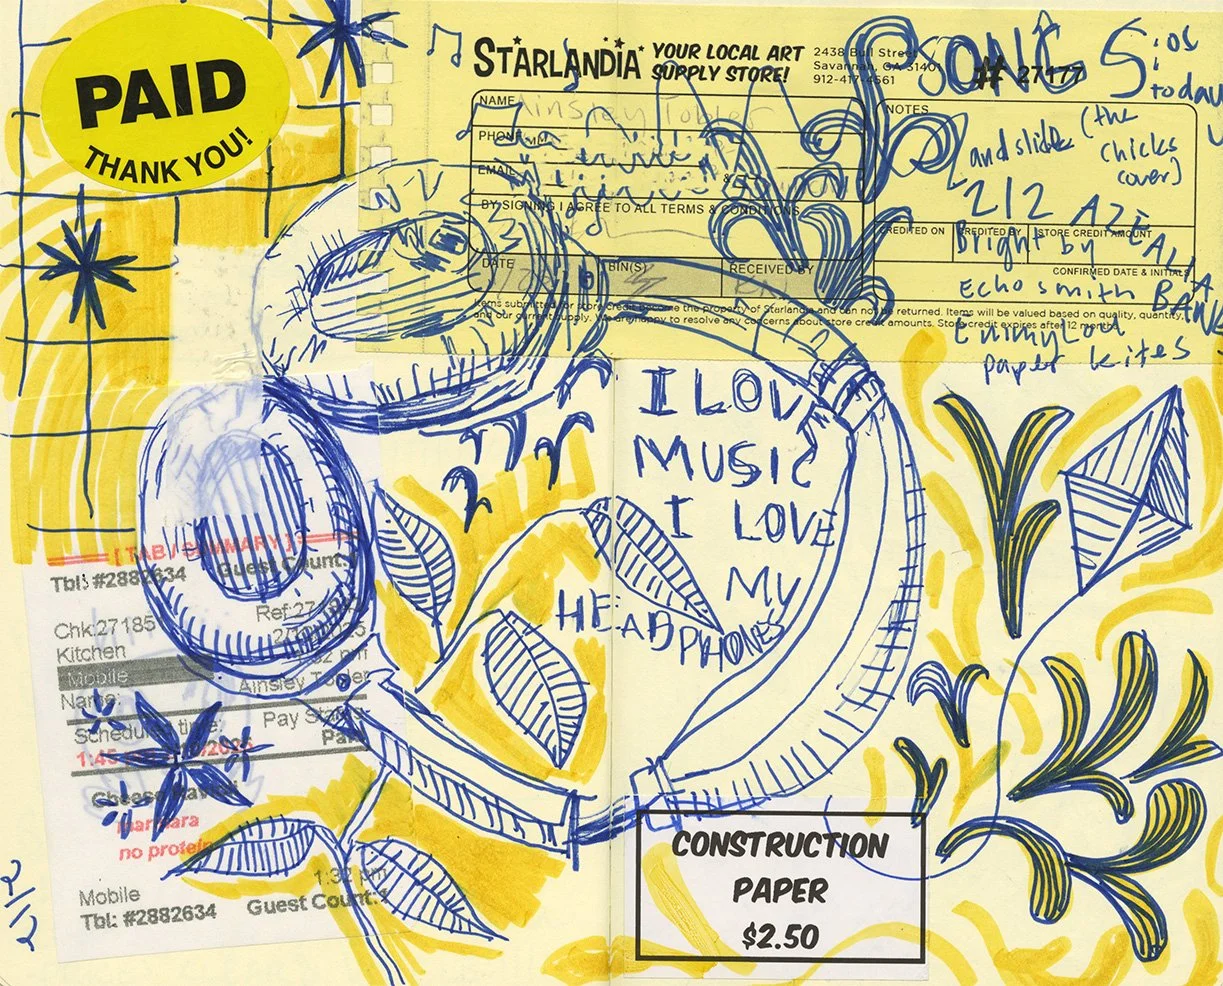 PAID
THANK YOU!
STARLANDIA YOUR LOCAL ART
SUPPLY STORE!
2438 Bull Street
Savannah, GA 31401
912-417-4561
# 27177
SONG
today
NAME Ainsley Tobler
PHONE
EMAIL
BY SIGNING I AGREE TO ALL TERMS & CONDITIONS
DATE
BIN(S)
RECEIVED BY
NOTES
Landslide (the
chicks
cover)
212 AZEALIA
BANKS
CREDITED ON
CREDITED BY
STORE CREDIT AMOUNT
CONFIRMED DATE & INITIALS
Bright by
Echosmith
paper kites
Items submitted for store credit become the property of Starlandia and can not be returned. Items will be valued based on quality, quantity,
and our current supply. We are happy to resolve any concerns about store credit amounts. Store credit expires after 12 months.
I LOVE
MUSIC
I LOVE
MY
HEADPHONES
[ TAB / SUMMARY ]
Tbl: #2882634 Guest Count:
Chk:27185
Kitchen
Mobile
Name: Ainsley
Scheduled time:
Pay
marinara
no protein
1:32 pm
Mobile
Tbl: #2882634 Guest Count:1
2/12
CONSTRUCTION
PAPER
$2.50